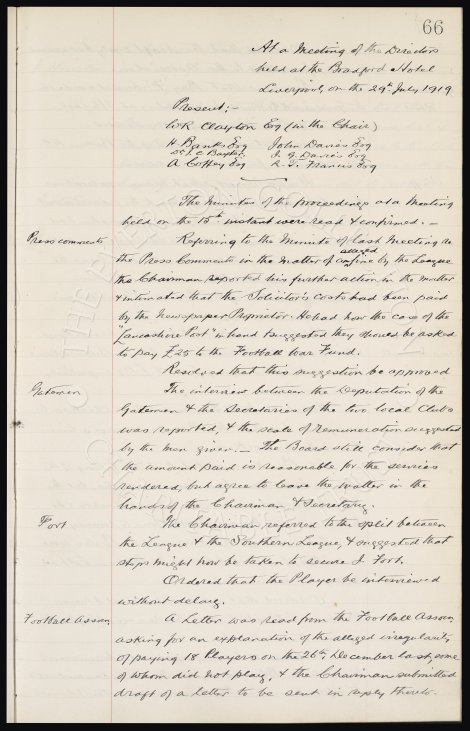 66
At a Meeting of the Directors
held at the Bradford Hotel
Liverpool, on the 29th July 1919
Present:-
W R Clayton Esq (in the Chair)
H Banks Esq John Davies Esq
Dr J. C. Baxter J. G. Davies Esq
A Coffey Esq R. T. Francis Esq
The Minutes of the proceedings at a Meeting
held on the 15th instant were read & confirmed. -
Press comments Referring to the Minute of last Meeting re
the Press Comments in the matter of an alleged fine by the League
the Chairman reported his further action in the matter
& intimated that the Solicitor's costs had been paid
by the Newspaper Proprietor. He had now the case of the
"Lancashire Post" in hand & suggested they should be asked
to pay £25 to the Football War Fund.
Resolved that this suggestion be approved
Gatemen The interview between the Deputation of the
Gatemen & the Secretaries of the two local Clubs
was reported, & the scale of remuneration suggested
by the men given. - The Board still consider that
the amount paid is reasonable for the services
rendered, but agree to leave the matter in the
hands of the Chairman & Secretary.
Fort The Chairman referred to the split between
the League & the Southern League, & suggested that
steps might now be taken to secure J. Fort.
Ordered that the Player be interviewed
without delay.
Football Assocn A letter was read from the Football Assocn
asking for an explanation of the alleged irregularity
of paying 18 Players on the 26th December last, some
of whom did not play, & the Chairman submitted
draft of a letter to be sent in reply thereto.